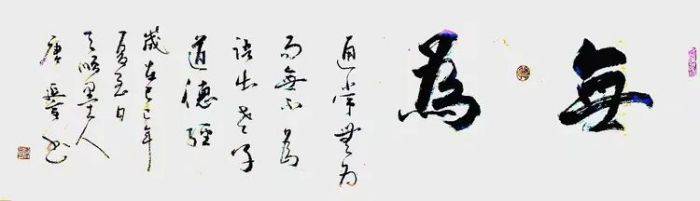 無為
道常無为
而無不為
語出老子
道德經
歲在乙巳年
夏日
墨人
唐书